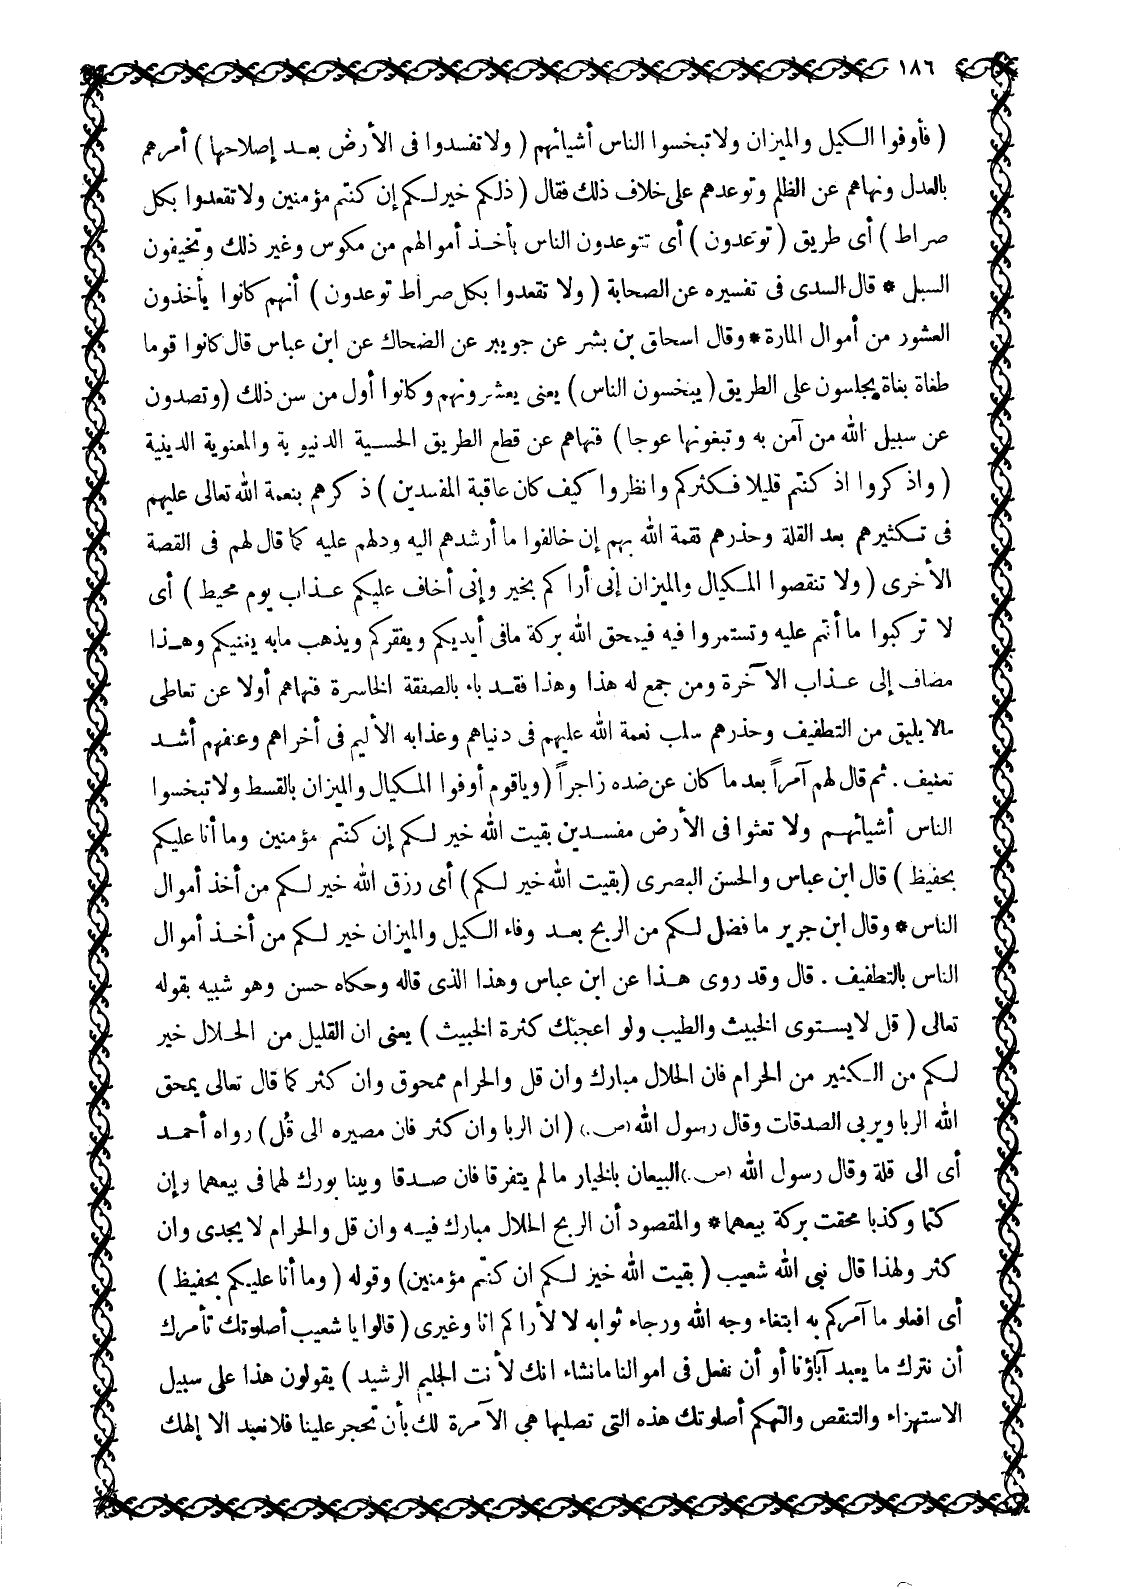 ١٨٦
( فأوفوا الكيل والميزان ولا تبخسوا الناس أشيائهم ( ولا تفسدوا فى الأرض بعد إصلاحها ) أمرهم
بالعدل ونهاهم عن الظلم وتوعدهم على خلاف ذلك فقال ( ذلكم خير لكم إن كنتم مؤمنين ولا تقعدوا بكل
صراط ) أى طريق ( توعدون ) أى تتوعدون الناس بأخذ أموالهم من مكوس وغير ذلك وتخيفون
السبل * قال السدى فى تفسيره عن الصحابة ( ولا تقعدوا بكل صراط توعدون ) أنهم كانوا يأخذون
العشور من أموال المارة * وقال اسحاق بن بشر عن جويبر عن الضحاك عن ابن عباس قال كانوا قوما
طغاة بغاة يجلسون على الطريق ( يبخسون الناس ) يعنى يعشرونهم وكانوا أول من سن ذلك ( وتصدون
عن سبيل الله من آمن به وتبغونها عوجا ) فنهاهم عن قطع الطريق الحسية الدنيوية والمعنوية الدينية
( واذكروا اذ كنتم قليلا فكثركم وانظروا كيف كان عاقبة المفسدين ) ذكرهم بنعمة الله تعالى عليهم
فى تكثيرهم بعد القلة وحذرهم نقمة الله بهم إن خالفوا ما أرشدهم اليه ودلهم عليه كما قال لهم فى القصة
الأخرى ( ولا تنقصوا المكيال والميزان إنى أراكم بخير وإنى أخاف عليكم عذاب يوم محيط ) أى
لا تركبوا ما أنتم عليه وتستمروا فيه فيمحق الله بركة مافى أيديكم ويفقركم ويذهب مابه يغنيكم وهذا
مضاف إلى عذاب الآخرة ومن جمع له هذا وهذا فقد باء بالصفقة الخاسرة فنهاهم أولا عن تعاطى
مالا يليق من التطفيف وحذرهم سلب نعمة الله عليهم فى دنياهم وعذابه الأليم فى أخراهم وعنفهم أشد
تعنيف . ثم قال لهم آمراً بعد ما كان عن ضده زاجراً ( وياقوم أوفوا المكيال والميزان بالقسط ولا تبخسوا
الناس أشيائهم ولا تعثوا فى الأرض مفسدين بقيت الله خير لكم إن كنتم مؤمنين وما أنا عليكم
بحفيظ ) قال ابن عباس والحسن البصرى ( بقيت الله خير لكم ) أى رزق الله خير لكم من أخذ أموال
الناس * وقال ابن جرير ما فضل لكم من الربح بعد وفاء الكيل والميزان خير لكم من أخذ أموال
الناس بالتطفيف . قال وقد روى هذا عن ابن عباس وهذا الذى قاله وحكاه حسن وهو شبيه بقوله
تعالى ( قل لا يستوى الخبيث والطيب ولو اعجبك كثرة الخبيث ) يعنى ان القليل من الحلال خير
لكم من الكثير من الحرام فان الحلال مبارك وان قل والحرام ممحوق وان كثر كما قال تعالى يمحق
الله الربا ويربى الصدقات وقال رسول الله (ص.) ( ان الربا وان كثر فان مصيره الى قُل ) رواه أحمد
أى الى قلة وقال رسول الله (ص.) البيعان بالخيار ما لم يتفرقا فان صدقا وبينا بورك لهما فى بيعهما وإن
كتما وكذبا محقت بركة بيعهما * والمقصود أن الربح الحلال مبارك فيه وان قل والحرام لا يجدى وان
كثر ولهذا قال نبى الله شعيب ( بقيت الله خيز لكم ان كنتم مؤمنين ) وقوله ( وما أنا عليكم بحفيظ )
أى افعلو ما آمركم به ابتغاء وجه الله ورجاء ثوابه لا لأراكم انا وغيرى ( قالوا يا شعيب أصلوتك تأمرك
أن نترك ما يعبد آباؤنا أو أن نفعل فى اموالنا مانشاء انك لأنت الحليم الرشيد ) يقولون هذا على سبيل
الاستهزاء والتنقص والتهكم أصلوتك هذه التى تصليها هى الآمرة لك بأن تحجر علينا فلا نعبد الا إلهك